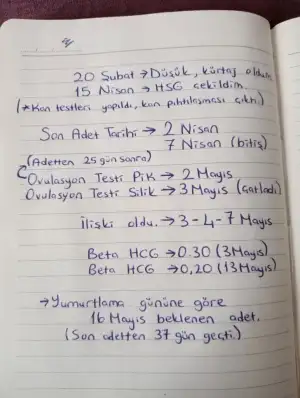 20 Şubat → Düşük, kürtaj oldum.
15 Nisan → HSG çekildim.
(*Kan testleri yapıldı, kan pıhtılaşması çıktı.)
Son Adet Tarihi → 2 Nisan
7 Nisan (bitiş)
(Adetten 25 gün sonra)
Ovulasyon Testi Pik → 2 Mayıs
Ovulasyon Testi Silik → 3 Mayıs (Çatladı)
ilişki oldu. → 3-4-7 Mayıs
Beta HCG → 0.30 (3 Mayıs)
Beta HCG → 0,20 (13 Mayıs)
→ Yumurtlama gününe göre
16 Mayıs beklenen adet.
(Son adetten 37 gün geçti.)